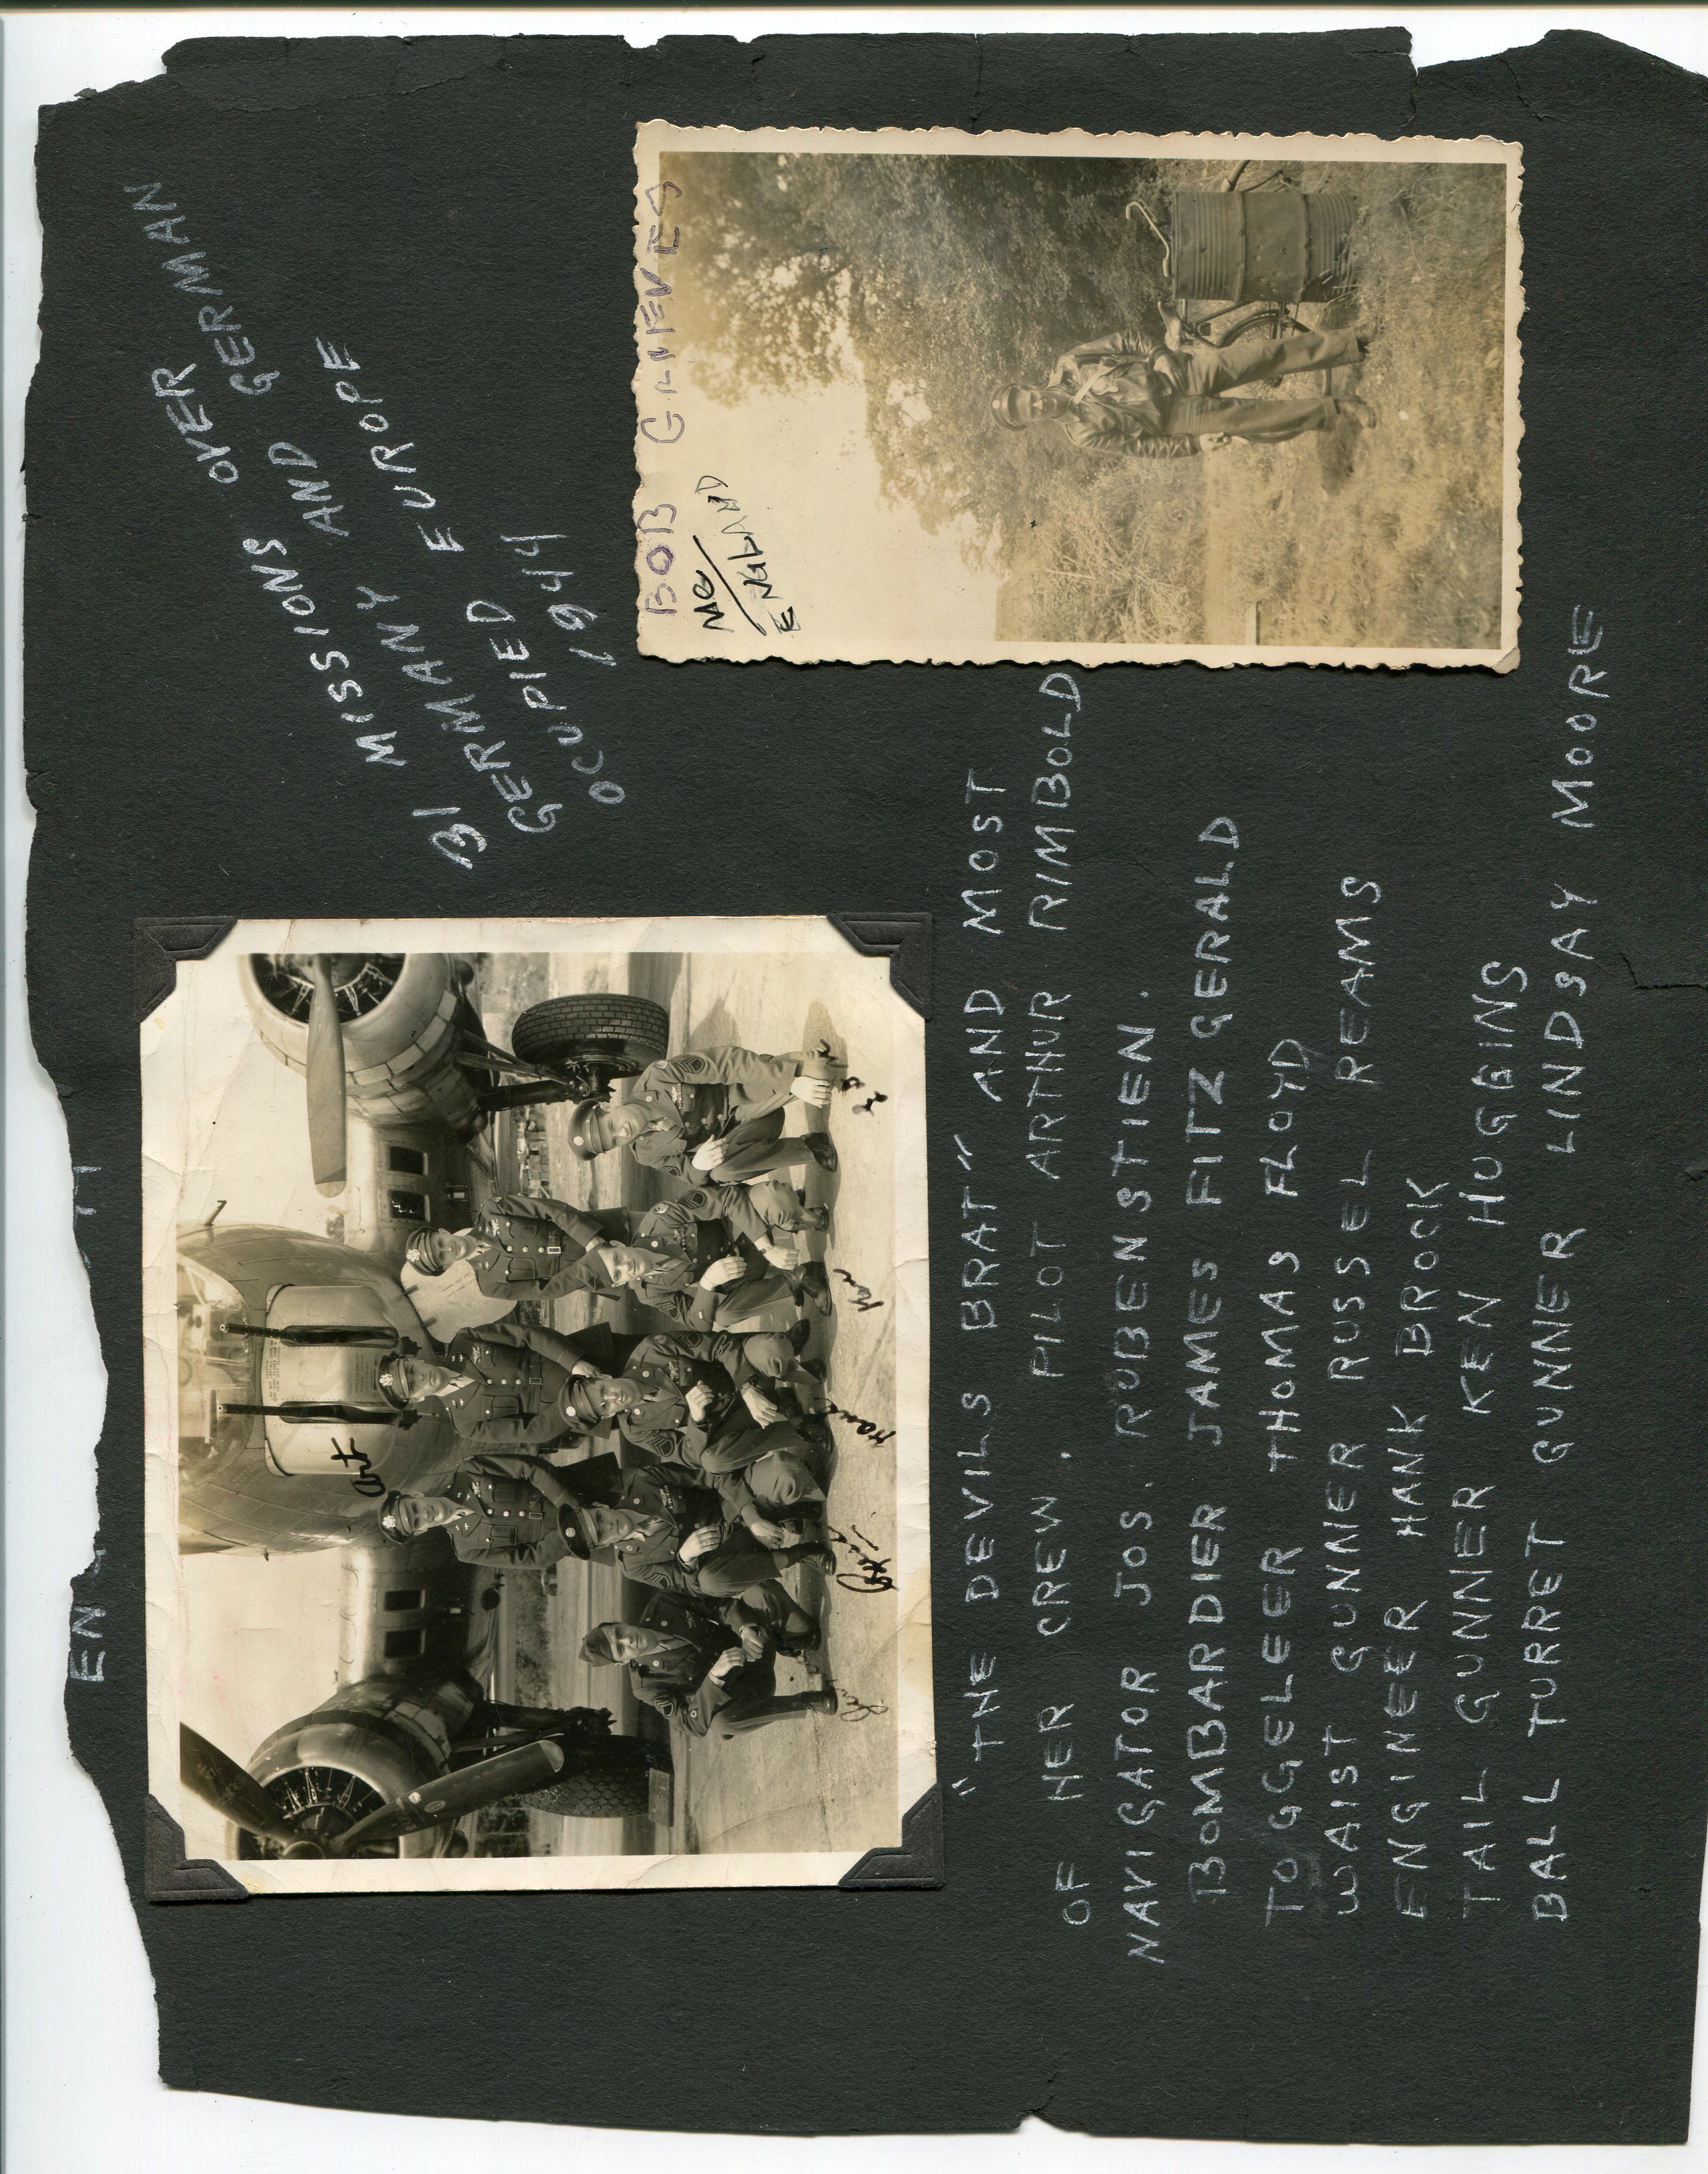 31 MISSIONS OVER
GERMANY AND GERMAN
OCUPIED EUROPE
1944
BOB
ME
ENGLAND
Art
Hank
Ken
"THE DEVILS BRAT" AND MOST
OF HER CREW. PILOT ARTHUR RIMBOLD
NAVIGATOR JOS. RUBENSTIEN.
BOMBARDIER JAMES FITZ GERALD
TOGGELEER THOMAS FLOYD
WAIST GUNNER RUSSEL REAMS
ENGINEER HANK BROCK
TAIL GUNNER KEN HUGGINS
BALL TURRET GUNNER LINDSAY MOORE